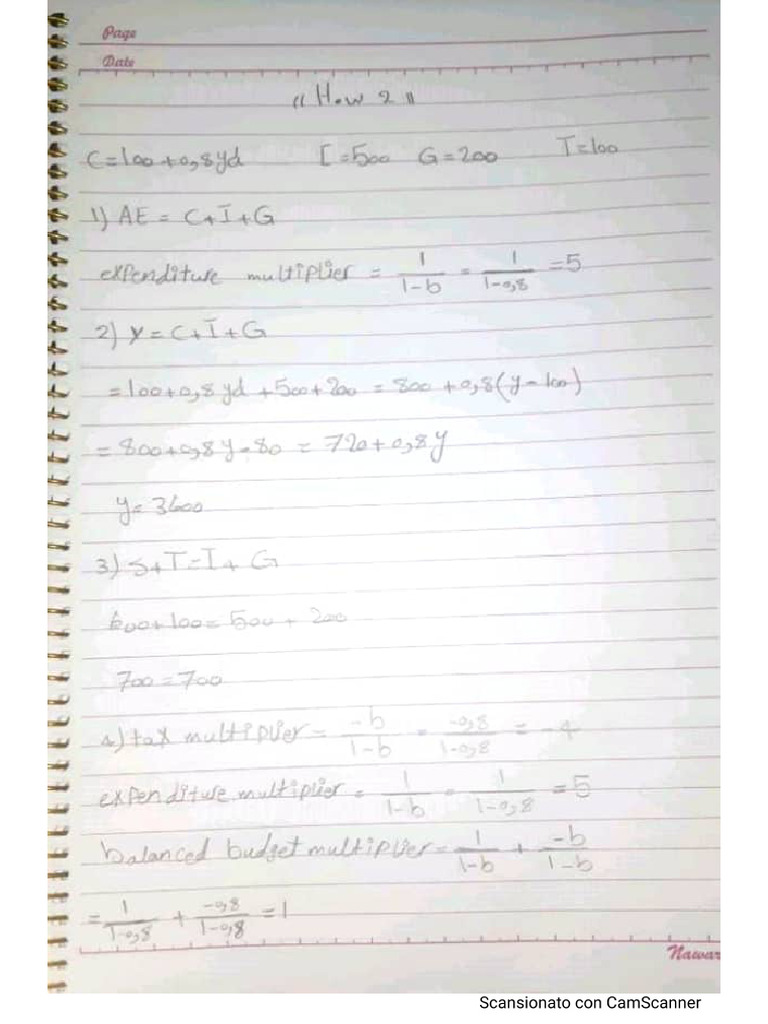 Page
Date
"How 2"
C=100+0,8yd I=500 G=200 T=100
1) AE = C+I+G
expenditure multiplier = 1/1-b = 1/1-0,8 = 5
2) Y = C+I+G
=100+0,8yd+500+200 = 800+0,8(y-100)
= 800+0,8y-80 = 720+0,8y
y= 3600
3) S+T=I+G
600+100=500+200
700=700
4) tax multiplier = -b/1-b = -0,8/1-0,8 = -4
expenditure multiplier = 1/1-b = 1/1-0,8 = 5
balanced budget multiplier = 1/1-b + -b/1-b
= 1/1-0,8 + -0,8/1-0,8 = 1
Nawar
Scansionato con CamScanner